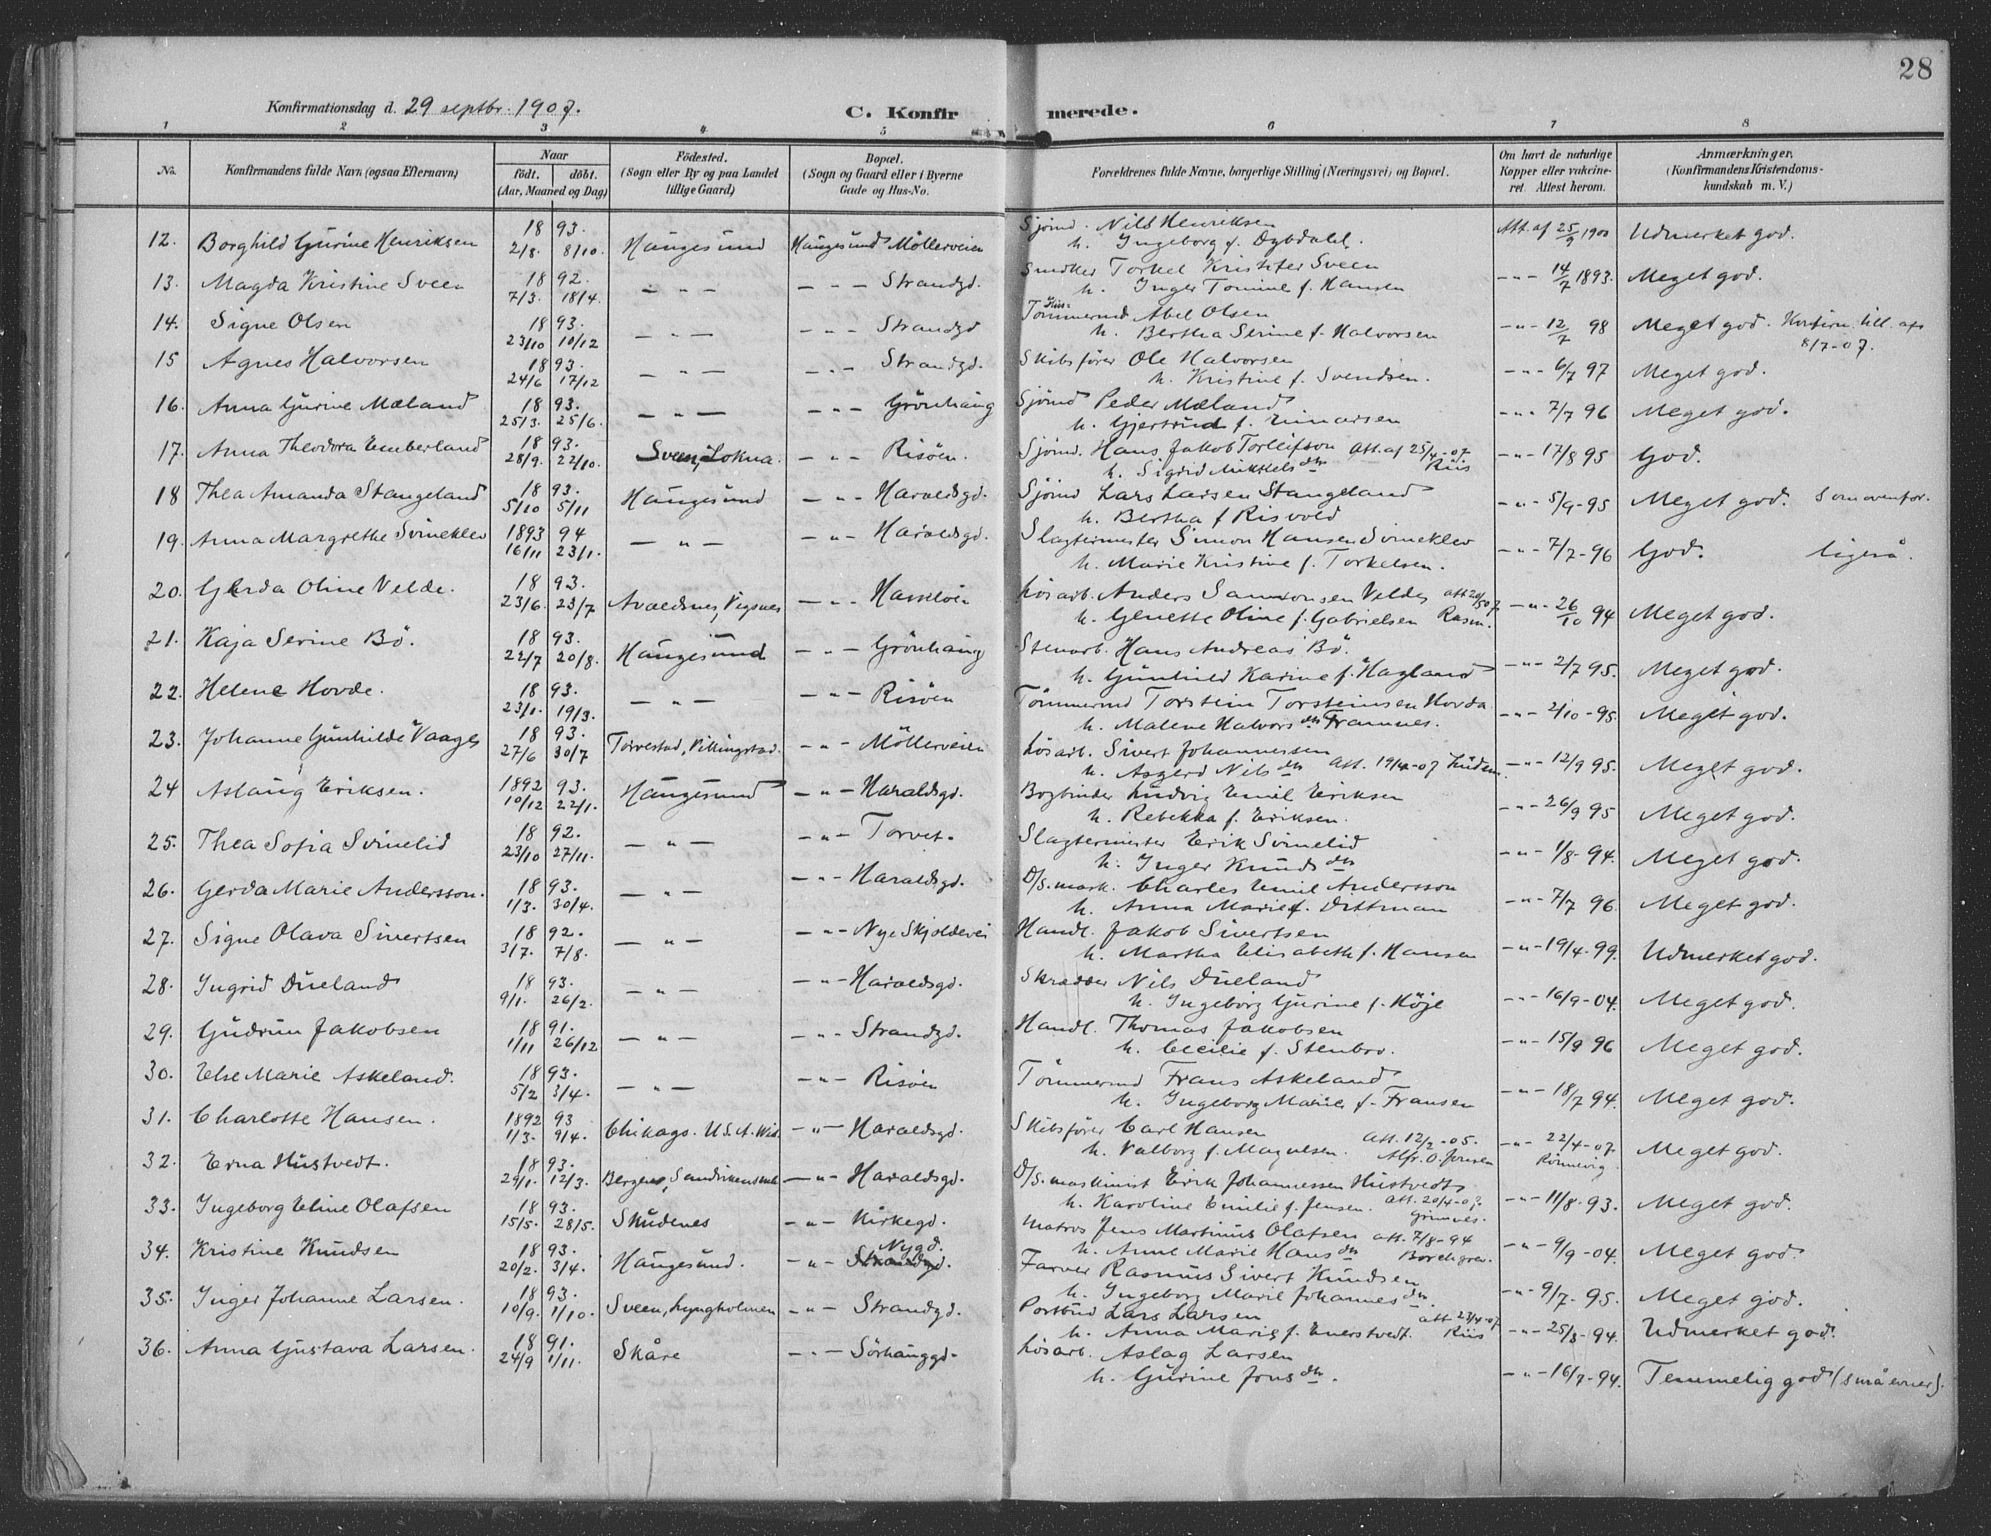 28
Konfirmationsdag d. 29 septbr. 1907.
C. Konfirmerede.
1 2 3 4 5 6 7 8
No.
Konfirmandens fulde Navn (ogsaa Efternavn)
Naar
født. døbt.
(Aar, Maaned og Dag)
Födested.
(Sogn eller By og paa Landet
tillige Gaard)
Bopæl.
(Sogn og Gaard eller i Byerne
Gade og Hus-No.
Forældrenes fulde Navne, borgerlige Stilling (Næringsvei) og Bopæl.
Om havt de naturlige
Kopper eller vakcine-
ret. Attest herom.
Anmærkninger.
(Konfirmandens Kristendoms-
kundskab m. V.)
12. Borghild Gurine Henriksen 1893. 2/8. 8/10. Haugesund Haugesund Möllerveien Sjömd. Nils Henriksen Att. af 25/9 1900 Udmerket god.
h. Ingeborg f. Dybdahl.
13. Magda Kristine Sveen 1892. 7/3. 18/4. — " — — " — Strandgd. Smdker Torkel Kristofer Sveen — " — 14/7 1893. Meget god.
h. Inger Tomine f. Hansen
14. Signe Olsen 1893. 23/10 10/12 — " — — " — Strandgd Hus-Tömmermd Abel Olsen — " — 12/7 98 Meget god. Konfirm. till. afs 8/7-07.
h. Bertha Serine f. Halvorsen
15 Agnes Halvorsen 1893. 24/6 17/12 — " — — " — Strandgd. Skibsförer Ole Halvorsen — " — 6/7 97 Meget god.
h. Kristine f. Svendsen.
16. Anna Gurine Mæland 1893. 25/3. 25/6. — " — — " — Grönhaug Sjömd Peder Mæland — " — 7/7 96 Meget god.
h. Gjertrud f. Einarsen
17. Anna Theodora Emberland 1893. 28/9. 22/10. Sveen, Lokna. — " — Risöen. Sjömd. Hans Jakob Torleifson Att. af 25/4-07. Riis — " — 17/8 95 God.
h. Sigrid Mikkelsdtr
18 Thea Amanda Stangeland 1893. 5/10 5/11 Haugesund — " — Haraldsgd. Sjömd Lars Larsen Stangeland — " — 5/9-95 Meget god. Som ovenfor.
h. Bertha f Risvold
19. Anna Margrethe Svineklev 1893 94 16/11 23/1. — " — — " — Haraldsgd. Slagtermester Simon Hansen Svineklev — " — 7/7-96 God. ligeså.
h. Marie Kristine f. Torkelsen.
20. Gerda Oline Velde. 1893. 23/6. 23/7 Avaldsnes, Vigsnes — " — Hasseløen Lösarb. Anders Samsonsen Velde att 20/5 07 — " — 26/10 94 Meget god.
h. Genette Oline f. Gabrielsen Rasm.
21. Kaja Serine Bö. 1893. 22/7 20/8. Haugesund — " — Grönhaug Stenarb. Hans Andreas Bö. — " — 2/7 95. Meget god.
h. Gunhild Karine f. Hagland
22. Helene Hovde. 1893. 23/1. 19/3. — " — — " — Risöen Tömmermd Torstein Torsteinsen Hovda — " — 2/10-95. Meget god.
h. Malene Halvorsdtr Framnes.
23. Johanne Gunhilde Vaage 1893. 27/6 30/7 Torvestad, Vikingstad. — " — Möllerveien Lösarb. Sivert Johannessen — " — 12/9 95. Meget god.
h. Asgerd Nilsdtr att. 19/4-07 Knudsen
24 Aslaug Eriksen. 1892 93. 10/12 22/1. Haugesund — " — Haraldsgd. Bogbinder Ludvig Emil Eriksen — " — 26/9 95 Meget god.
h. Rebekka f. Eriksen.
25. Thea Sofia Svinelid 1892. 23/10 27/11. — " — — " — Torvet. Slagtermester Erik Svinelid — " — 1/8-94. Meget god.
h. Inger Knudsdtr
26. Gerda Marie Andersson. 1893. 1/3. 30/4. — " — — " — Haraldsgd. D/S. mask. Charles Emil Andersson — " — 7/7 96. Meget god.
h. Anna Marie f. Dittman
27. Signe Olava Sivertsen 1892. 3/7. 7/8. — " — — " — Nye Skjoldevei Handl. Jakob Sivertsen — " — 19/4-99. Udmerket god.
h. Martha Elisabeth f. Hansen
28. Ingrid Dueland 1893. 9/1. 26/2. — " — — " — Haraldsgd. Skrædder Nils Dueland — " — 16/9-04. Meget god.
h. Ingeborg Gurine f. Höje
29. Gudrun Jakobsen 1891. 1/11 26/12 — " — — " — Strandgd. Handl. Thomas Jakobsen — " — 15/9 96 Meget god.
h. Cecilie f. Stenbro.
30. Else Marie Askeland. 1893. 5/2 3/4. — " — — " — Risöen Tömmermd Frans Askeland — " — 18/7 94. Meget god.
h. Ingeborg Marie f. Fransen
31. Charlotte Hansen. 1892 93 1/3. 9/4. Chikago. U.S.A. — " — Haraldsgd. Skibsförer Carl Hansen Att. 12/2-05. — " — 22/4-07. Rönnevig. Meget god.
h. Valborg f. Magnelsen. Alfr. O. Jonsen
32. Erna Hustvedt. 1893. 29/1. 12/3. Bergen, Sandvikens — " — Haraldsgd. D/S. maskinist Erik Johannessen Hustvedt — " — 11/8-93. Meget god.
h. Karoline Emilie f. Jensen. att. 20/4-07. Grimnes.
33. Ingeborg Eline Olafsen 1893. 15/5. 28/5. Skudenes — " — Kirkegd. Matros Jens Martinus Olafsen att. 7/8-94 — " — 9/9-04. Meget god.
h. Anne Marie Hansdtr Borchgrev.
34. Kristine Knudsen 1893. 20/2. 3/4. Haugesund. — " — Nygd. Strandgd. Farver Rasmus Sivert Knudsen — " — 9/7-95. Meget god.
h. Ingeborg Marie Johannesdtr.
35. Inger Johanne Larsen. 1893. 10/9. 1/10. Sveen, Lyngholmen — " — Strandgd. Postbud Lars Larsen att 23/4-07. Riis — " — 25/8-94. Udmerket god.
h. Anna Marie f. Enerstvedt.
36. Anna Gustava Larsen. 1891. 24/9 1/11. Skåre — " — Sörhauggd. Lösarb. Aslag Larsen — " — 16/7-94. Temmelig god (små evner).
h. Gurine Jonsdtr.